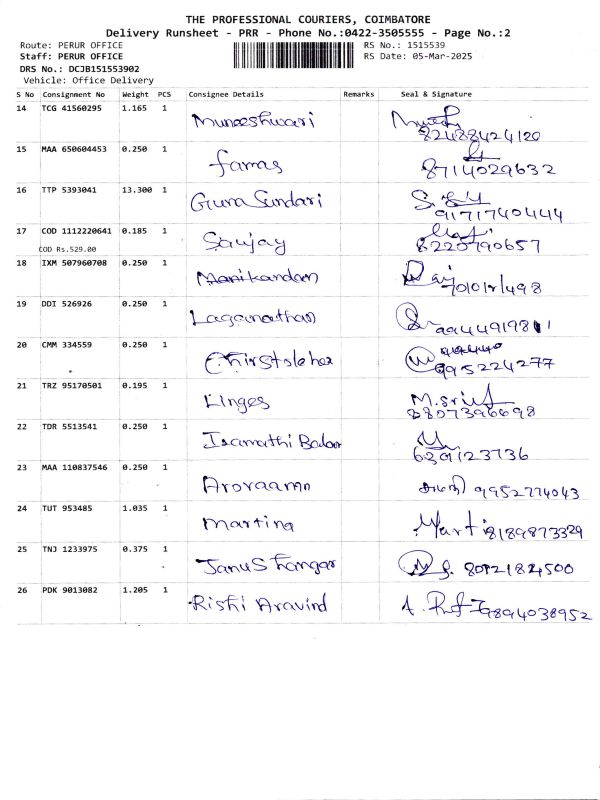 THE PROFESSIONAL COURIERS, COIMBATORE
Delivery Runsheet - PRR - Phone No.:0422-3505555 - Page No.:2
Route: PERUR OFFICE
RS No.: 1515539
Staff: PERUR OFFICE
RS Date: 05-Mar-2025
DRS No.: DCJB151553902
Vehicle: Office Delivery
S No Consignment No Weight PCS Consignee Details Remarks Seal & Signature
14 TCG 41560295 1.165 1 Muneeshwari
82488424120
15 MAA 650604453 0.250 1 famas
8714029632
16 TTP 5393041 13.300 1 Guna Sundari
9171740444
17 COD 1112220641 0.185 1 Sanjay
8220790657
COD Rs.529.00
18 IXM 507960708 0.250 1 Manikandan
19 DDI 526926 0.250 1 Laganathan
20 CMM 334559 0.250 1 Chirstoleher
995224277
21 TRZ 95170501 0.195 1 Linges
8807396698
22 TDR 5513541 0.250 1
6369123736
23 MAA 110837546 0.250 1 9952774043
24 TUT 953485 1.035 1 Martina Marti 8189873329
25 TNJ 1233975 0.375 1
26 PDK 9013082 1.205 1 Rishi Aravind 9894038952